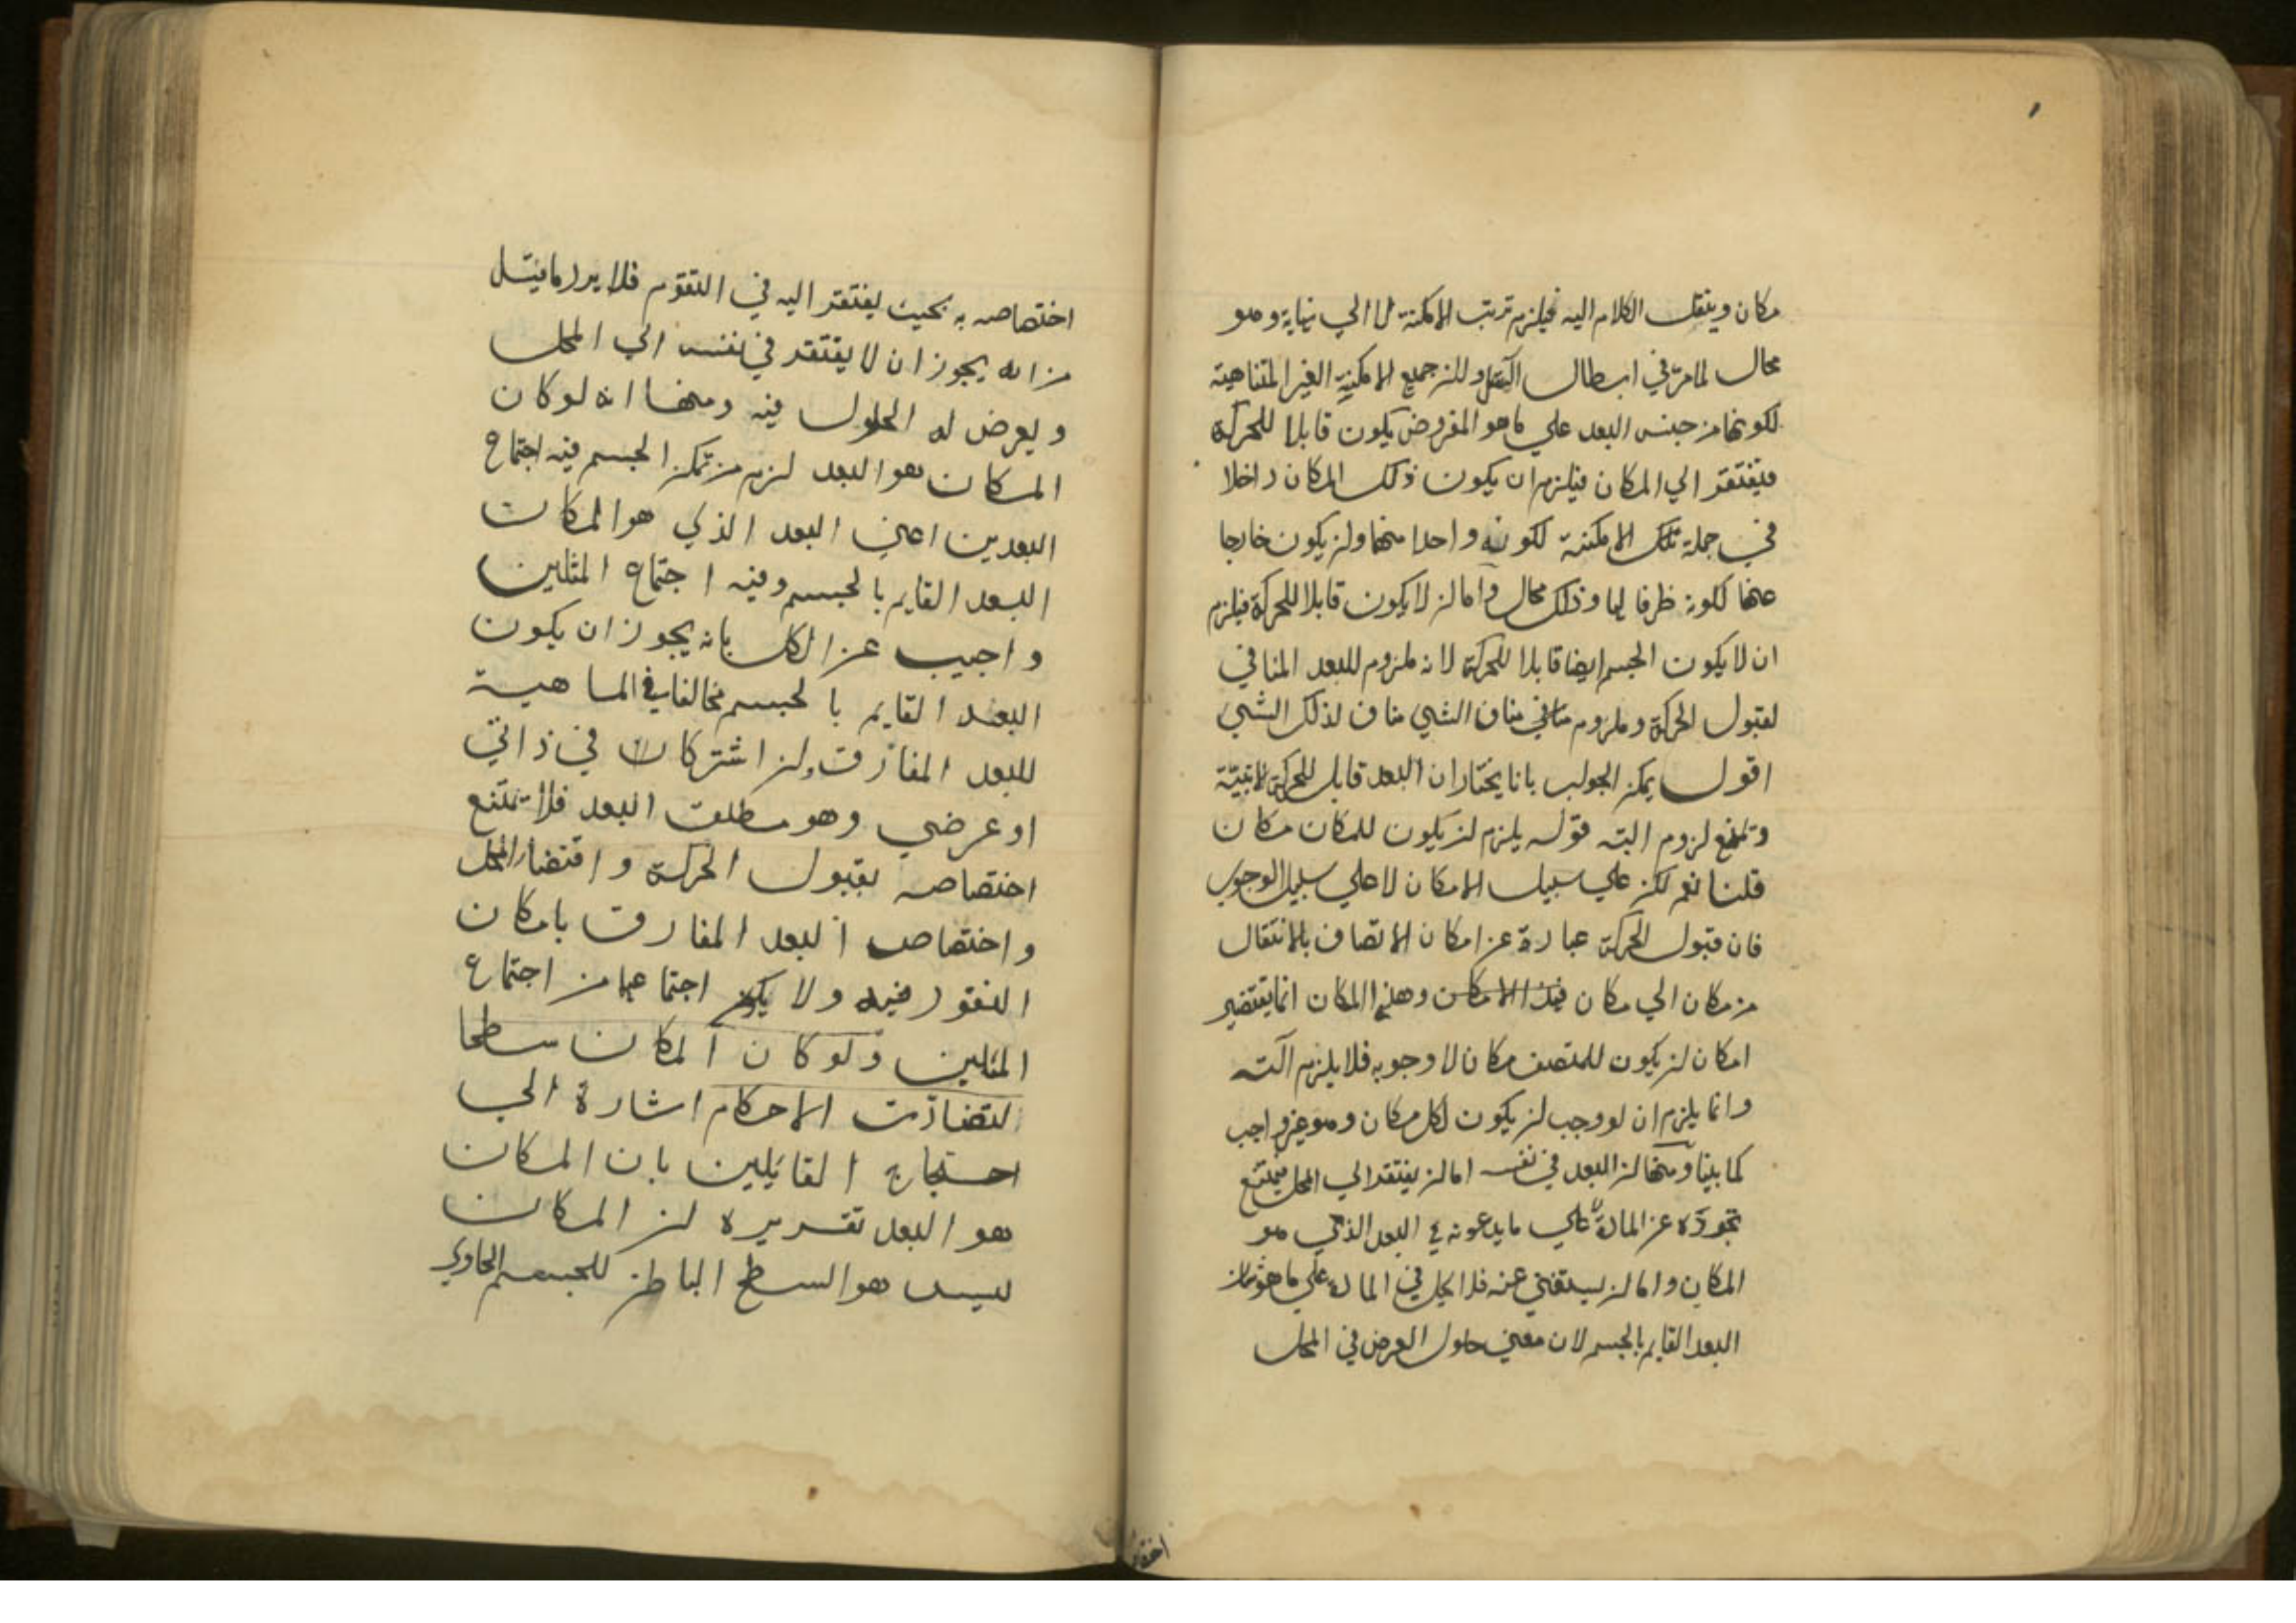 مكان وينقل الكلام اليه فيلزم ترتب الامكنة لا الي نهاية وهو
محال لما مر في ابطال التسلسل ولان جميع الامكنة الغير المتناهية
لكونها من جنس البعد علي ما هو المفروض يكون قابلا للحركة
فيفتقر الي المكان فيلزم ان يكون ذلك المكان داخلا
في جملة تلك الامكنة لكونه واحدا منها وان يكون خارجا
عنها لكونه ظرفا لها وذلك محال واما ان لا يكون قابلا للحركة فيلزم
ان لا يكون الجسم ايضا قابلا للحركة لانه ملزوم للبعد المنافي
لقبول الحركة وملزوم منافي الشي مناف لذلك الشي
اقول يمكن الجواب بانا نختار ان البعد قابل للحركة الاينية
ونمنع لزوم التسـ قوله يلزم ان يكون للمكان مكان
قلنا نعم لكن علي سبيل الامكان لا علي سبيل الوجوب
فان قبول الحركة عبارة عن امكان الاتصاف بالانتقال
من مكان الي مكان وهذا المكان انما يقتضي
امكان ان يكون للمتصف مكان لا وجوبه فلا يلزم التسـ
وانما يلزم ان لو وجب ان يكون لكل مكان وهو غير واجب
كما بينا ومنها ان البعد في نفسه اما ان يفتقر الي المحل فيمتنع
تجرده عن المادة علي ما يدعونه في البعد الذي هو
المكان واما ان يستغني عنه فلا يحل في المادة علي ما هو شان
البعد القايم بالجسم لان معني حلول العرض في المحل
اختصاصه به بحيث يفتقر اليه في التقوم فلا يرد ما قيل
من انه يجوز ان لا يفتقر في نفسه الي المحل
ويعرض له الحلول فيه ومنها انه لو كان
المكان هو البعد لزم من تمكن الجسم فيه اجتماع
البعدين اعني البعد الذي هو المكان
البعد القايم بالجسم وفيه اجتماع المثلين
واجيب عن الكل بانه يجوز ان يكون
البعد القايم بالجسم مخالفا في الماهية
للبعد المفارق وان اشتركا في ذاتي
او عرضي وهو مطلق البعد فلا تمتنع
اختصاصه بقبول الحركة واقتضاء المحل
واختصاص البعد المفارق بامكان
النفوذ فيه ولا يكون اجتماعهما من اجتماع
المثلين ولو كان المكان سطحا
لتضادت الاحكام اشارة الي
احتجاج القايلين بان المكان
هو البعد تقريره ان المكان
ليس هو السطح الباطن للجسم الحاوي